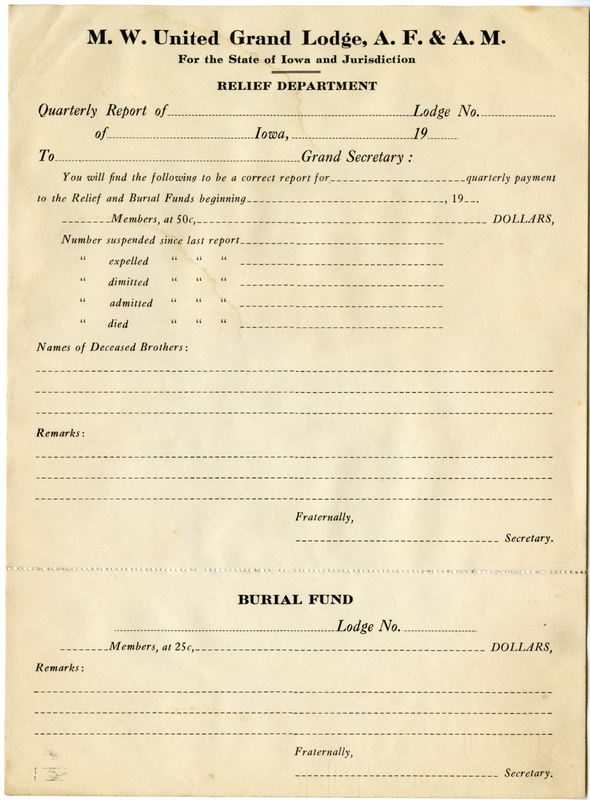 M. W. United Grand Lodge, A. F. & A. M.
For the State of Iowa and Jurisdiction
RELIEF DEPARTMENT
Quarterly Report of Lodge No.
of Iowa, 19
To Grand Secretary:
You will find the following to be a correct report for quarterly payment
to the Relief and Burial Funds beginning , 19 .
Members, at 50c, DOLLARS,
Number suspended since last report
" expelled " " "
" dimitted " " "
" admitted " " "
" died " " "
Names of Deceased Brothers:
Remarks:
Fraternally,
Secretary.
BURIAL FUND
Lodge No.
Members, at 25c, DOLLARS,
Remarks:
Fraternally,
Secretary.